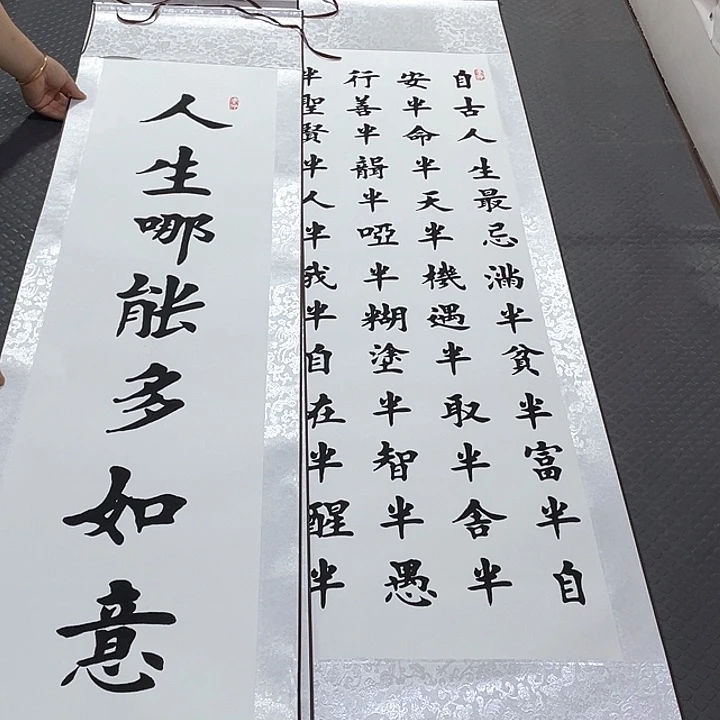 自古人生最忌滿半貧半富半自
安半命半天半機遇半取舍半
行善半聾半啞半糊塗半智半愚
半聖賢半人半我半自在半醒半
人生哪能多如意